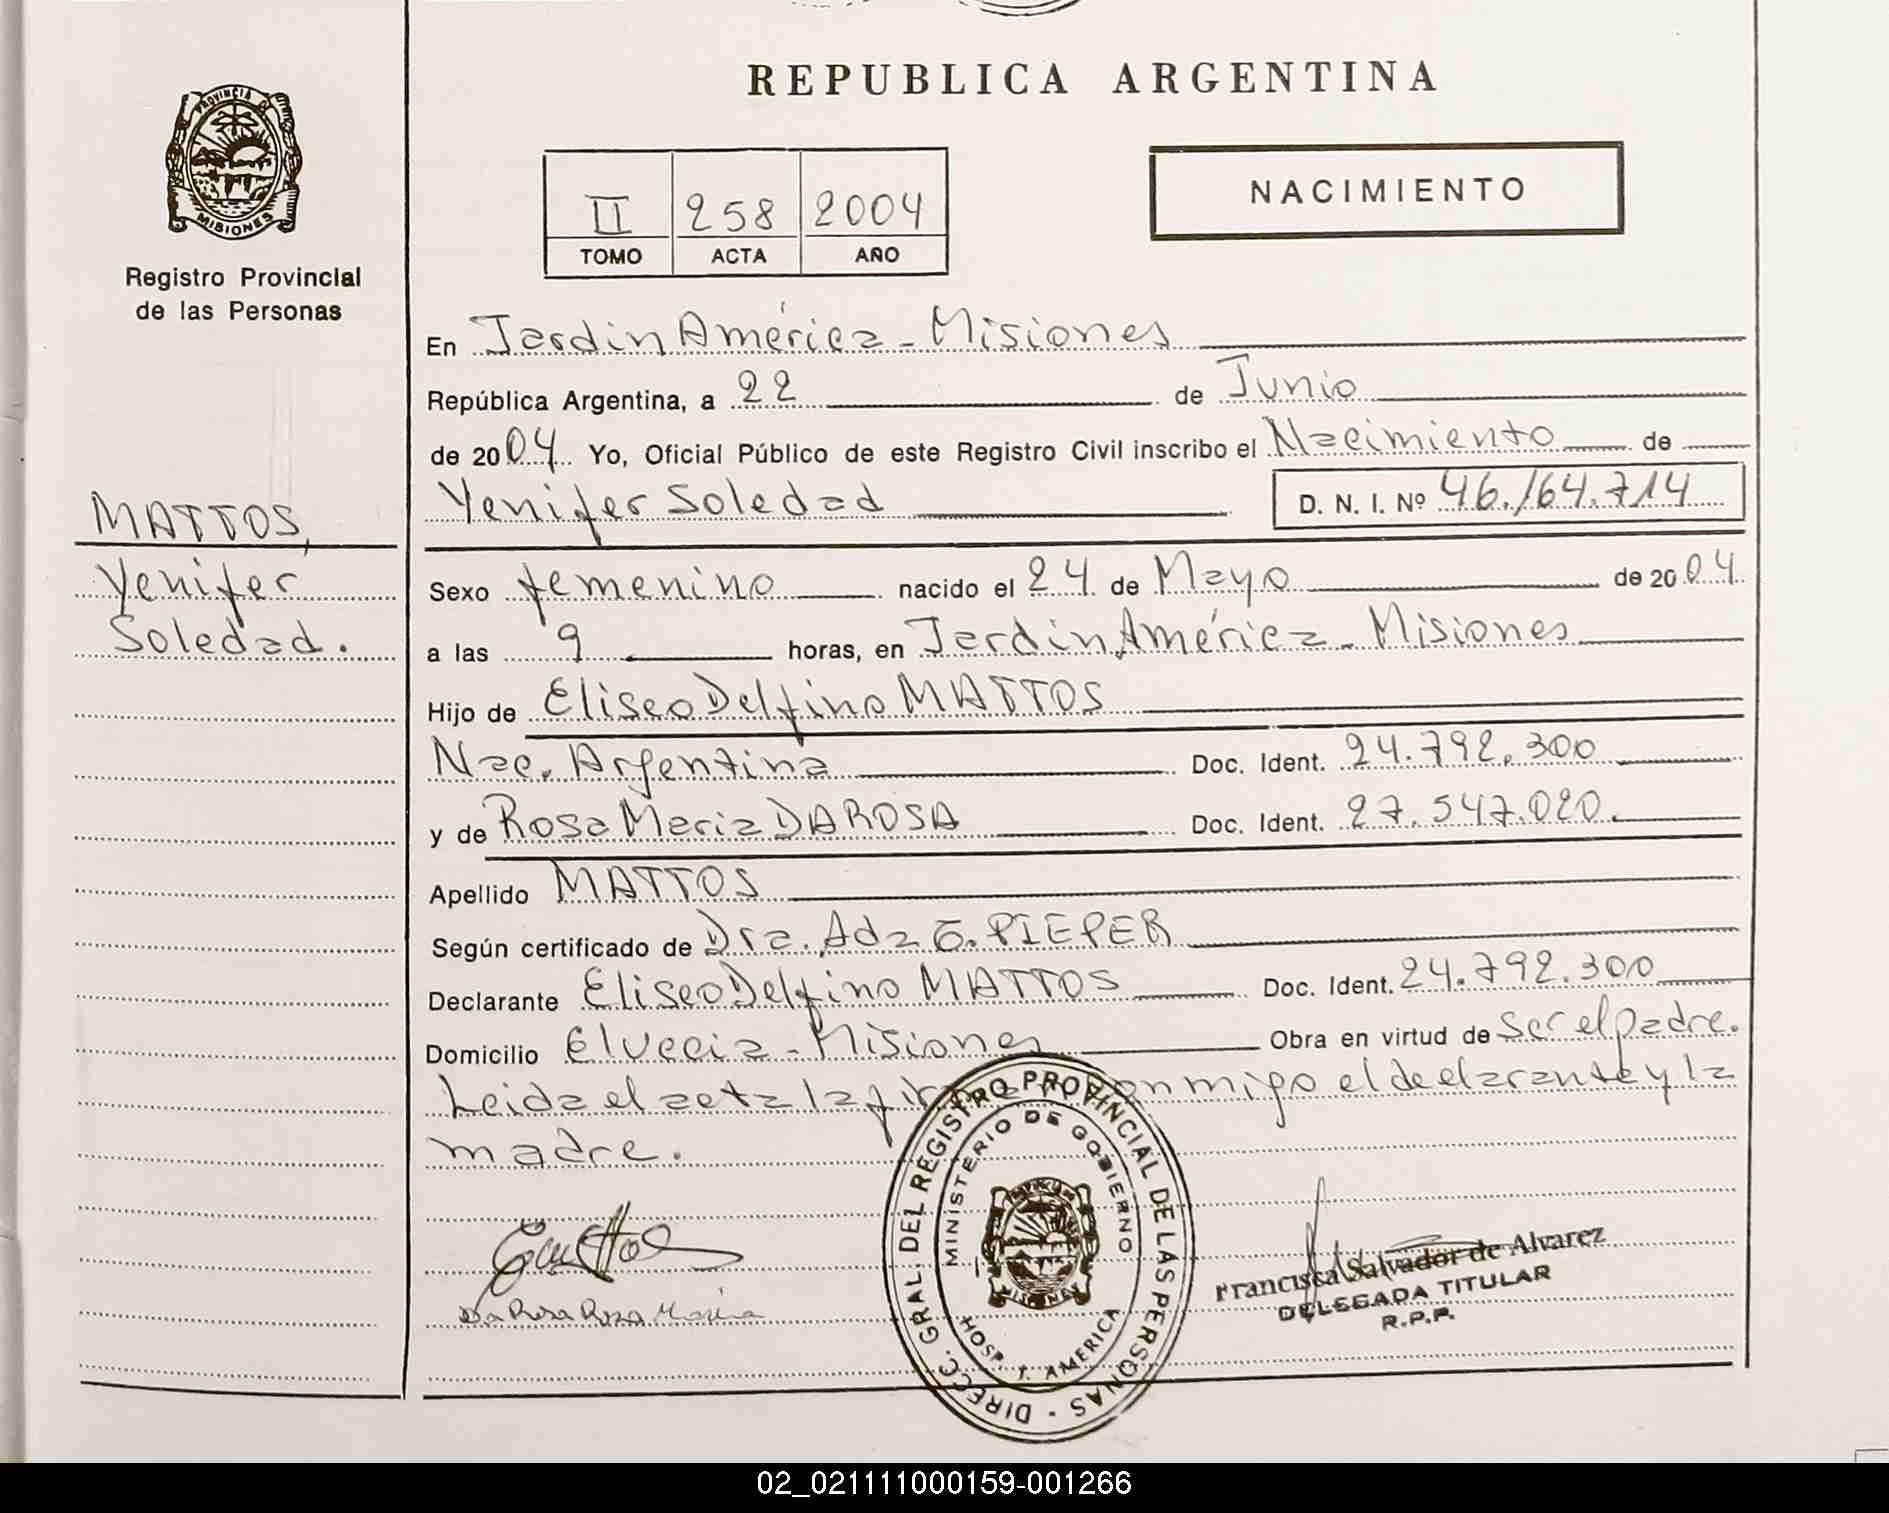 PROVINCIA D
MISIONES
Registro Provincial
de las Personas
MATTOS,
Yenifer
Soledad.
REPUBLICA ARGENTINA
II 258 2004
TOMO ACTA AÑO
NACIMIENTO
En Jardin América - Misiones
República Argentina, a 22 de Junio
de 2004 Yo, Oficial Público de este Registro Civil inscribo el Nacimiento de
Yenifer Soledad D. N. I. Nº 46.164.714
Sexo femenino nacido el 24 de Mayo de 2004
a las 9 horas, en Jardin América - Misiones
Hijo de Eliseo Delfino MATTOS
Nac. Argentina Doc. Ident. 24.792.300
y de Rosa Maria DA ROSA Doc. Ident. 27.547.020.
Apellido MATTOS
Según certificado de Dra. Ada E. PIEPER
Declarante Eliseo Delfino MATTOS Doc. Ident. 24.792.300
Domicilio Elvecia - Misiones Obra en virtud de ser el padre.
Leida el acta la firma conmigo el declarante y la
madre.
Da Rosa Rosa Maria
DIRECC. GRAL. DEL REGISTRO PROVINCIAL DE LAS PERSONAS -
MINISTERIO DE GOBIERNO
HOSP. J. AMERICA
Francisca Salvador de Alvarez
DELEGADA TITULAR
R.P.P.
02_021111000159-001266